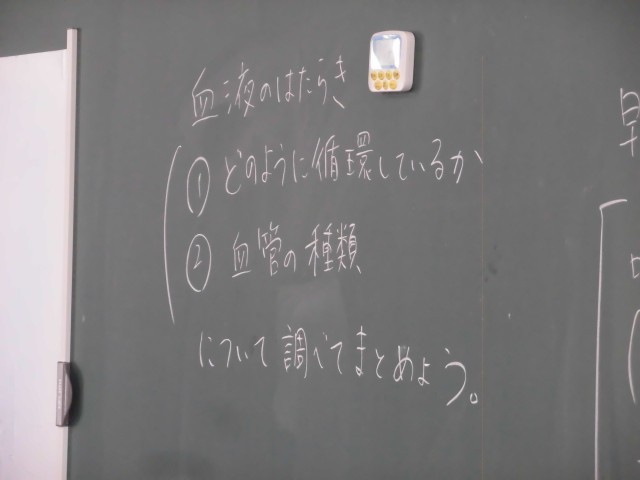 血液のはたらき
① どのように循環しているか
② 血管の種類
について調べてまとめよう。
早